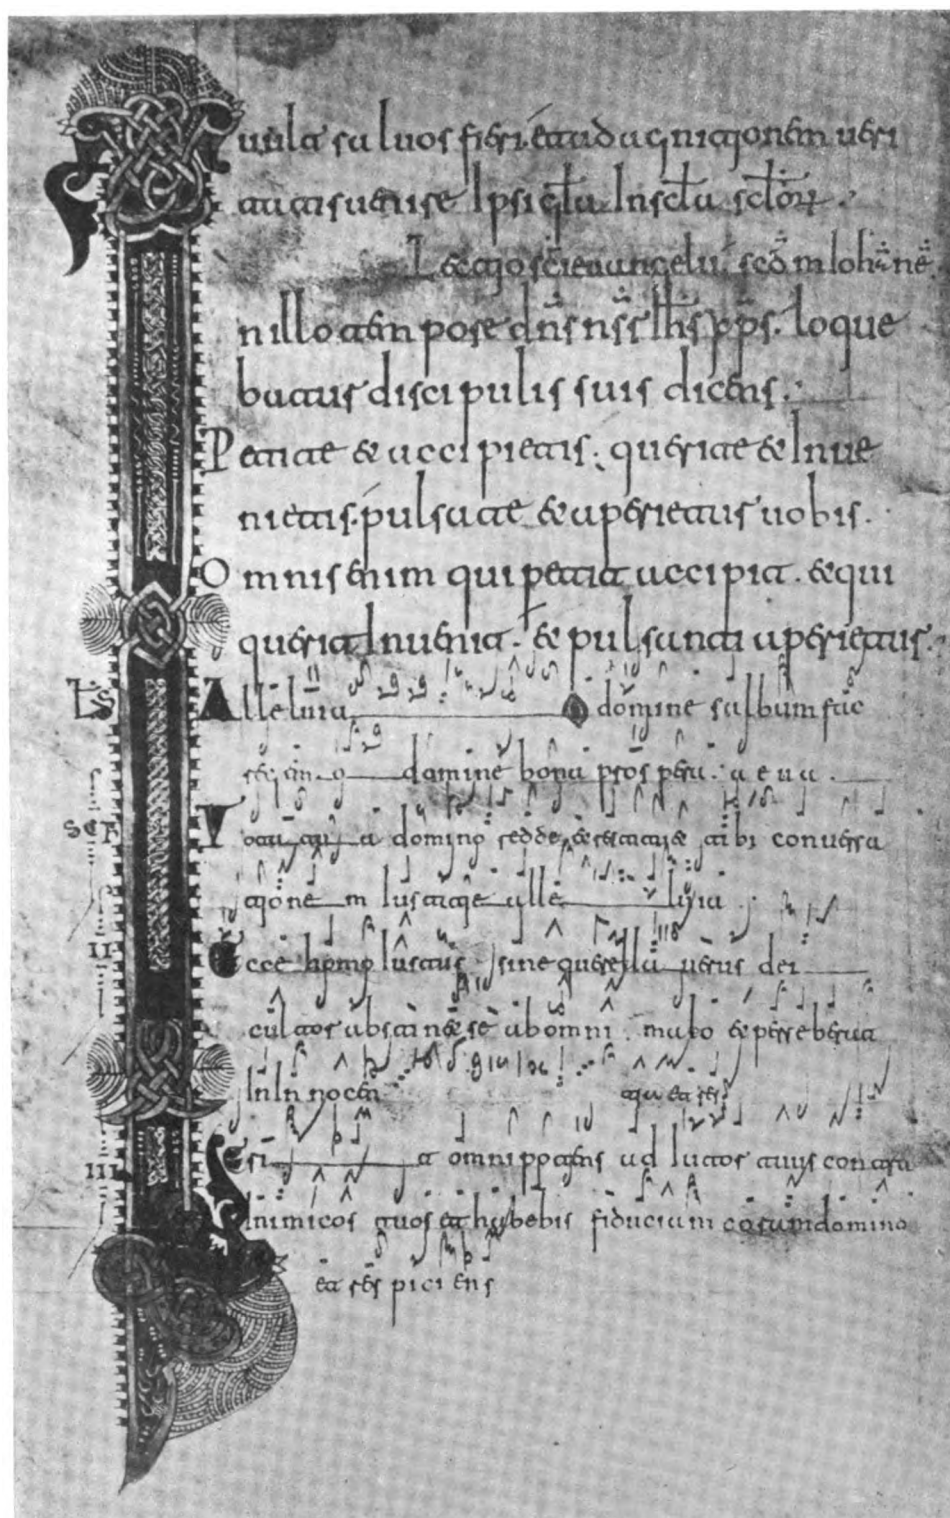 uult saluos fieri. et ad agnitionem ueri
tatis uenire Ipsi gła In scła scłor
Lectio sci euangelii scdm Ioh̄nē
n illo tempore dn̄s nsr Ihs xps. loque
batur discipulis suis dicens.
Petite & accipietis. querite & Inue
nietis. pulsate & aperietur uobis.
Omnis enim qui petit accipit. & qui
querit Inuenit. & pulsanti aperietur.
Alleluia O domine salbum fac
O domine bona prospera. a e u a.
VR a domino tibi conuersa
tione m Iustitie alleluia
II Ecce homo Iustus sine querella uerus dei
cultor abstinens se ab omni malo & perseberat
In Innocen
III Esi t omnipotens ad
Inimicos tuos et habebis fiduciam domino
et res piciens